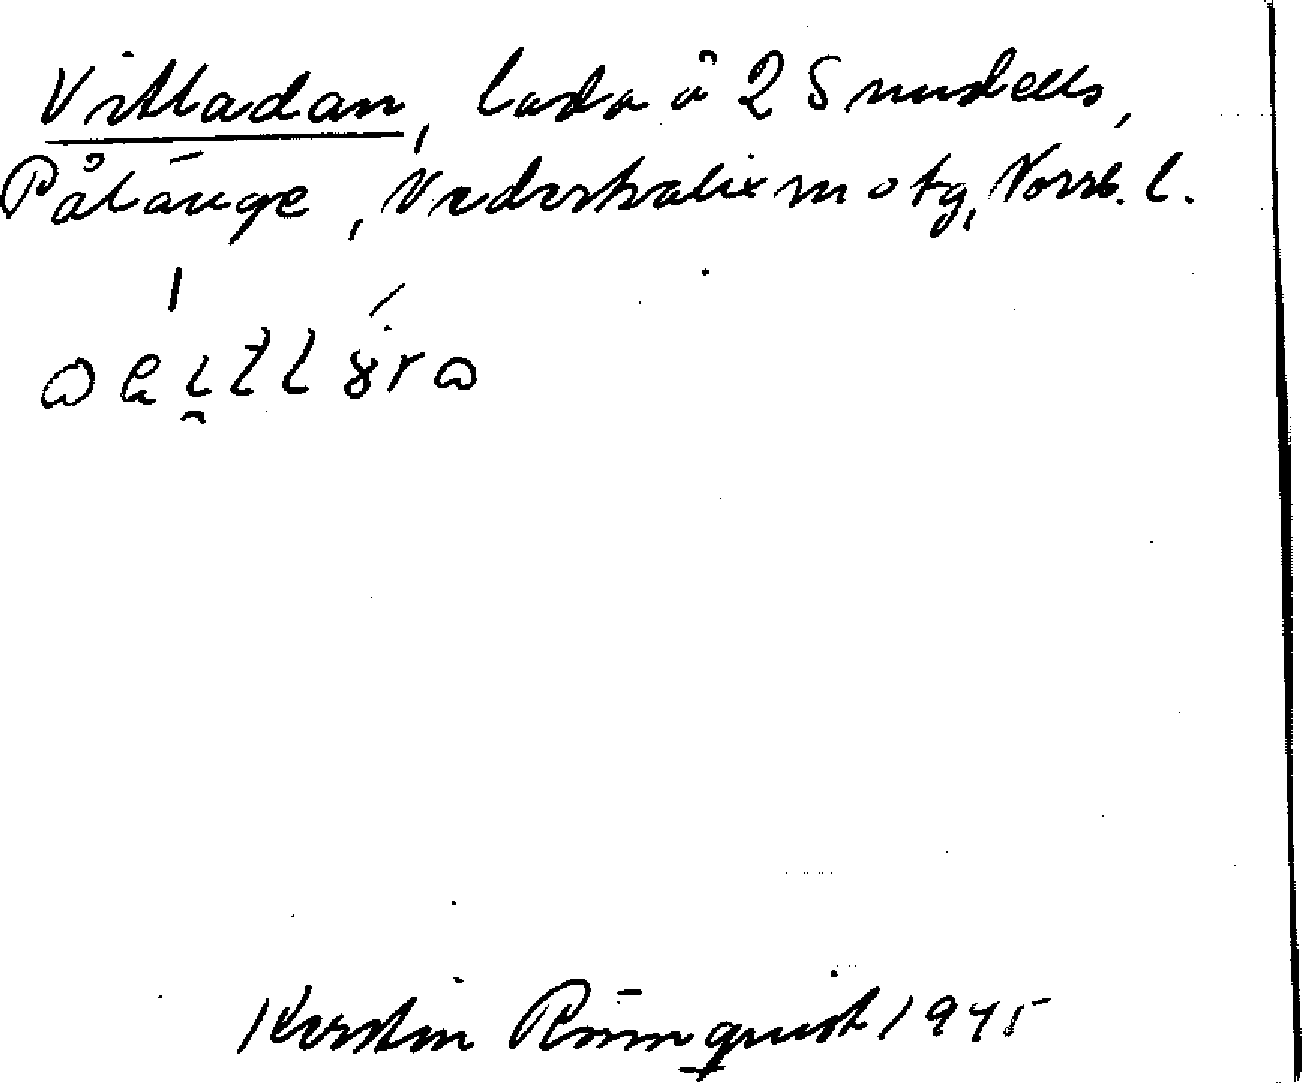 Vitladan, lada å 2 Smedells,
Pålänge, Nederkalix m o tg, Norrb. l.
Kerstin Rönnquist 1945